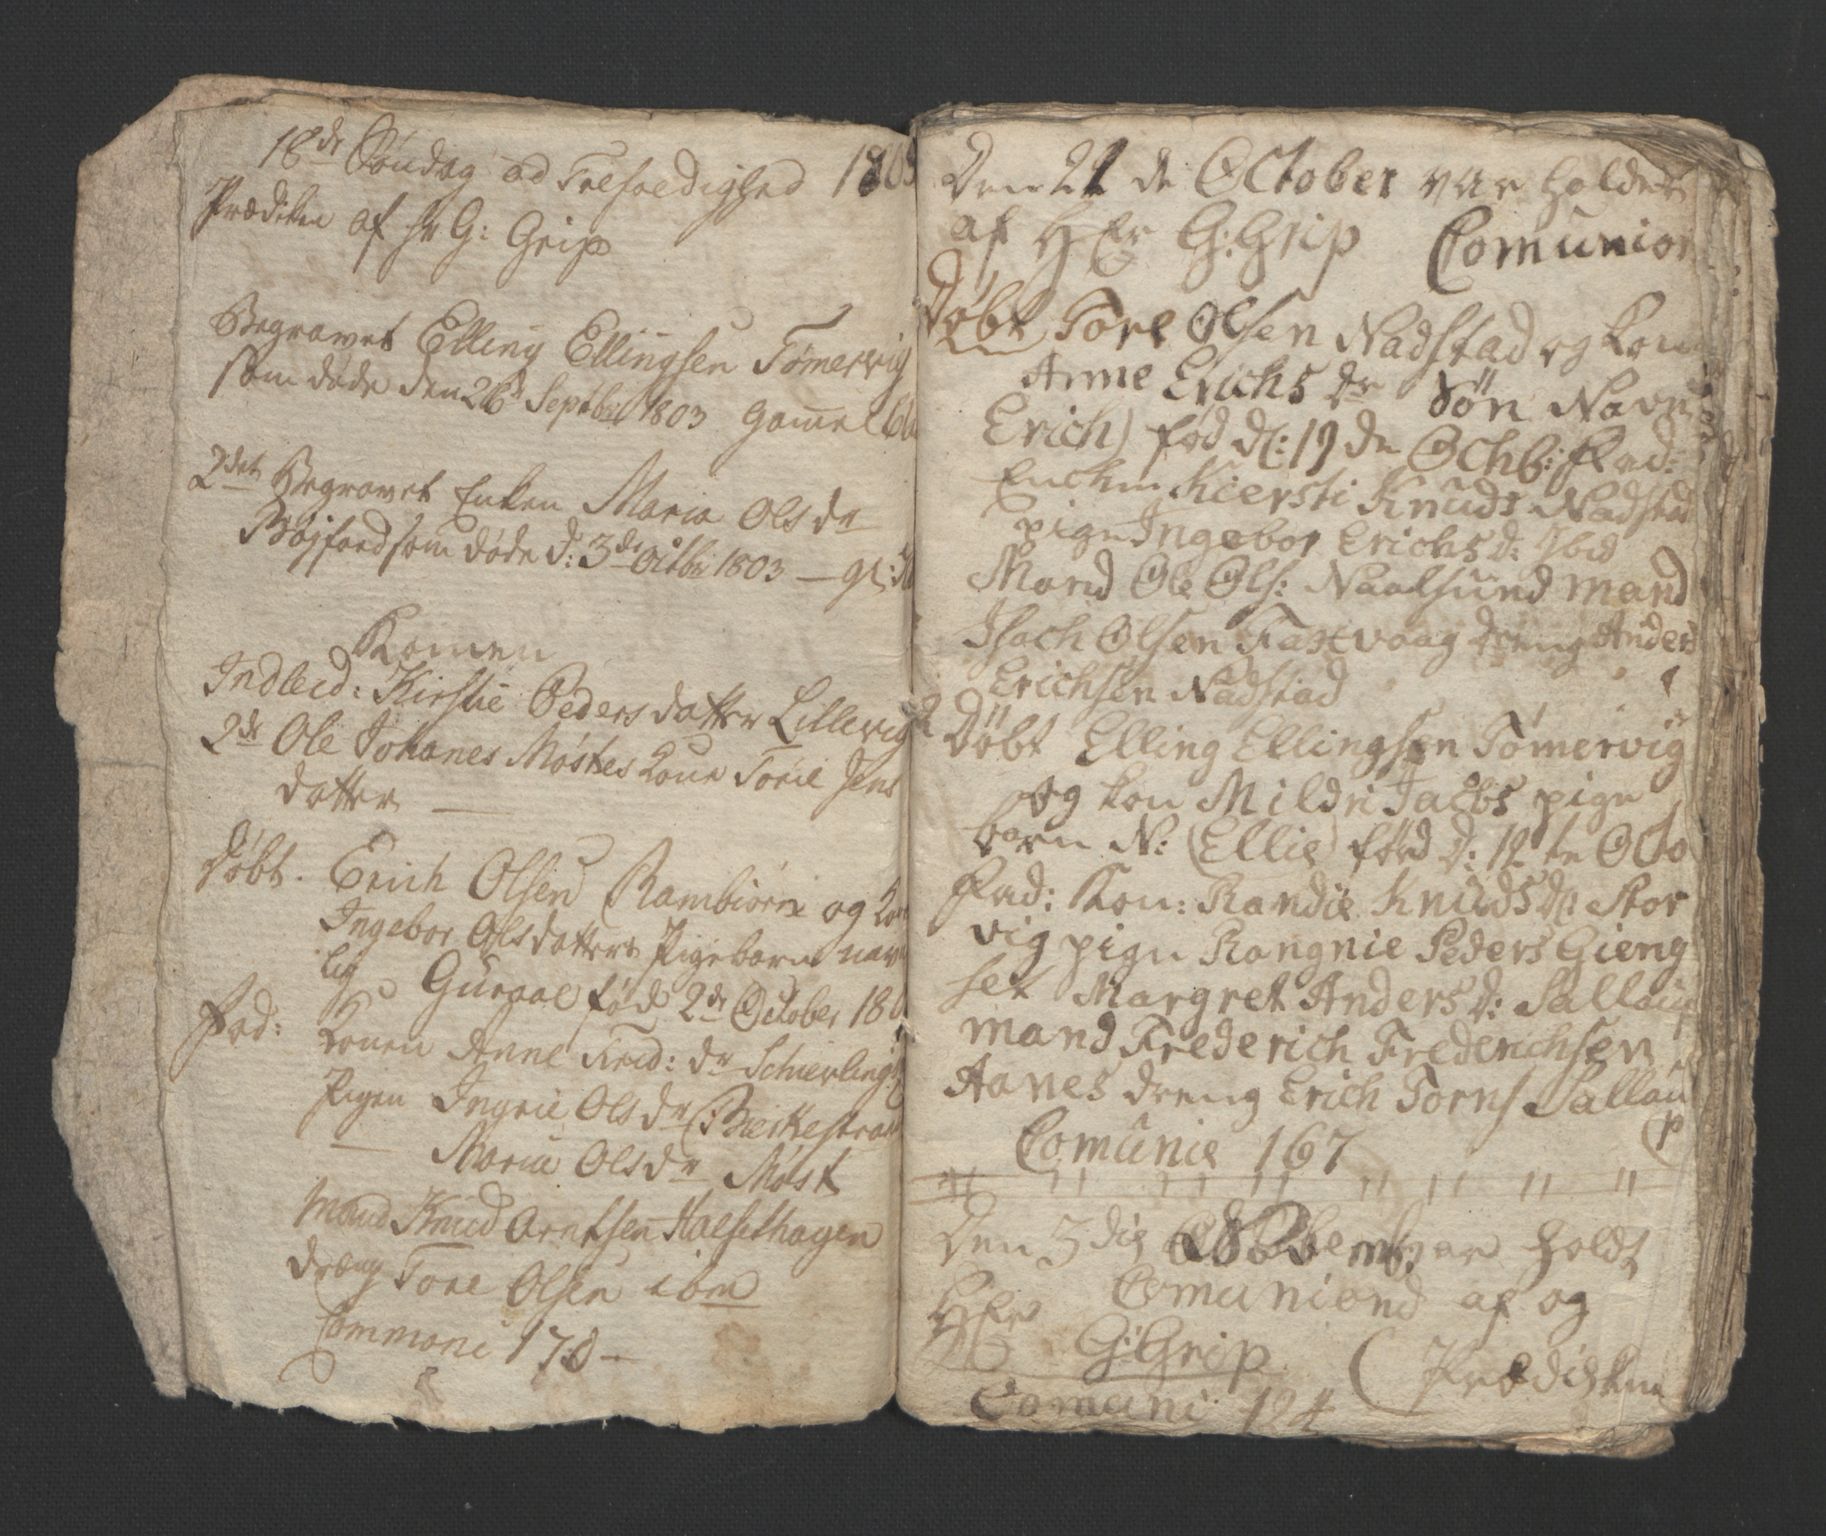 18de Søndag ad Trefoldighed 1803
Prædiken af hr G: Grip
Begravet Elling Ellingsen Tømervig
som døde den 26d Septbr 1803 Gamel
2det Begravet Enken Maria Olsdr
Bøjford som døde d: 3de Octbr 1803 — gl:
Konen
Indleid: Kirstie Pedersdatter Lillevig
2de Ole Johanes Møstes Kone Torie Jens
datter —
Døbt. Erich Olsen Rambiørn og Kon
Ingebor Olsdatters Pigebarn navn
lig Guroae fød 2de October 18
Fad: Konen Anne Frid: dr Schierling
Pigen Ingrie Olsdr Bierkestran
— Maria Olsdr Møst
Mand Knud Arntsen Halsethagen
dræng Tore Olsen ibm
Communi 178 —
Den 21 de October var holdet
af HEr G: Grip Comunion
Døbt Tore Olsen Nadstad og Kon
Anne Erichs dr Søn Navn
Erich) fød d: 19 de Octb: Fad:
Enchen Kiersti Knuds Nadstad
pign Ingebor Erichs d: Ibid
Mand Ole Ols: Naalsund mand
Isach Olsen Faxvaag dreng Anders
Erichsen Nadstad
2 Døbt Elling Ellingsen Tømervig
og kon Mildri Jacobs pign
barn N: (Ellie) fød d: 12 te Octo
Fad: Kon: Randie Knuds d: Stor
vig pign Rangnie Peders Gieng
set Margret Anders d: Sallau
mand Frederich Frederichsen
Aanes dreng Erich Torns Sallau
p
Comunie 167
Den 3 die var holdt
Comuniond af og
HEr G: Grip (Prædicken
Comuni 124